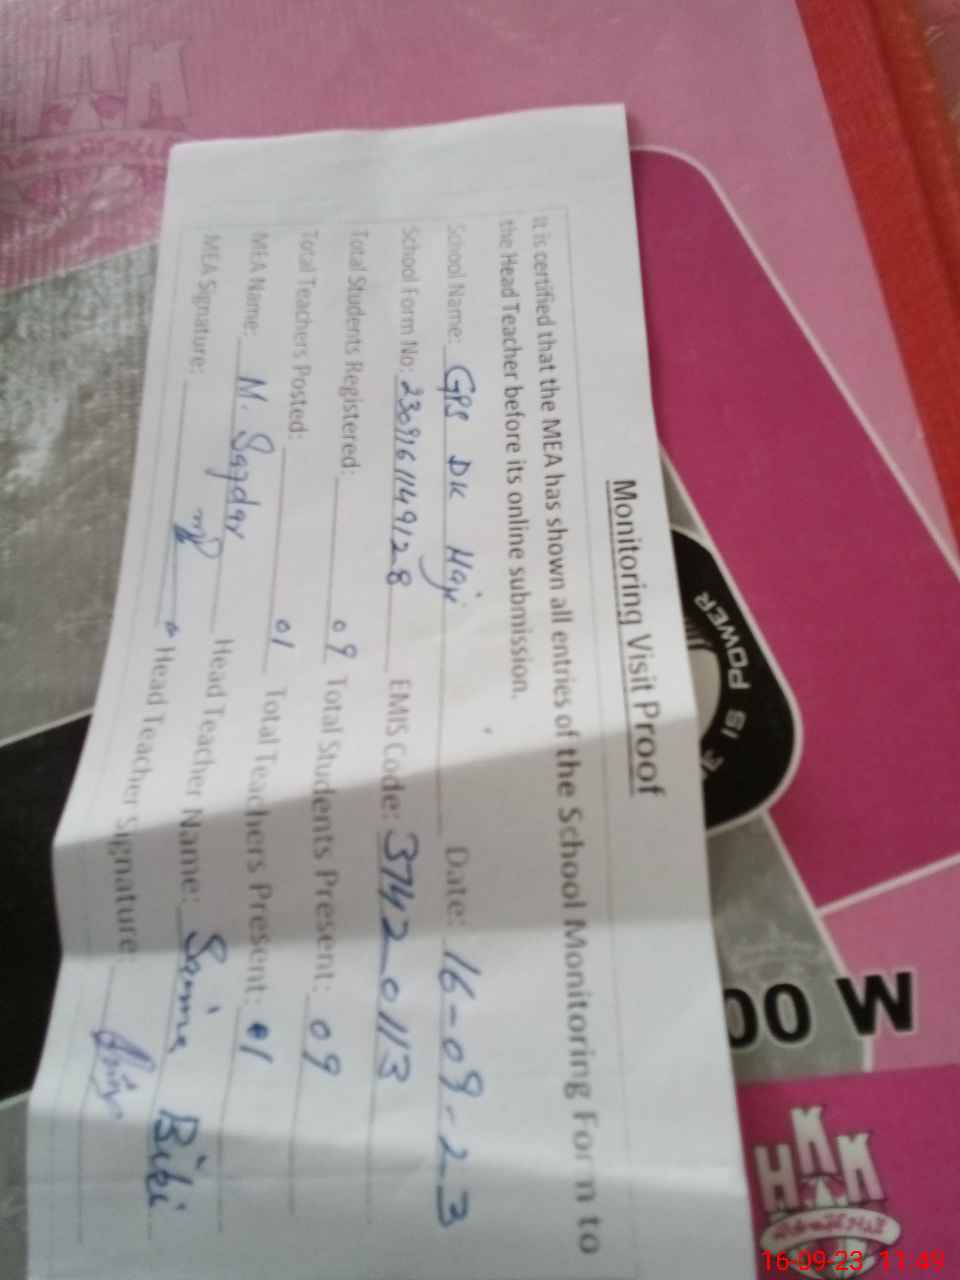 Monitoring Visit Proof
It is certified that the MEA has shown all entries of the School Monitoring Form to
the Head Teacher before its online submission.
School Name: GPS DK Haji Date: 16-09-23
School Form No: 2309161149128 EMIS Code: 37420113
Total Students Registered: 09 Total Students Present: 09
Total Teachers Posted: 01 Total Teachers Present: 01
MEA Name: M. Safdar Head Teacher Name: Saima Bibi
MEA Signature: Head Teacher Signature:
POWER IS
00 W
HKK
HKK
16-09-23 11:49